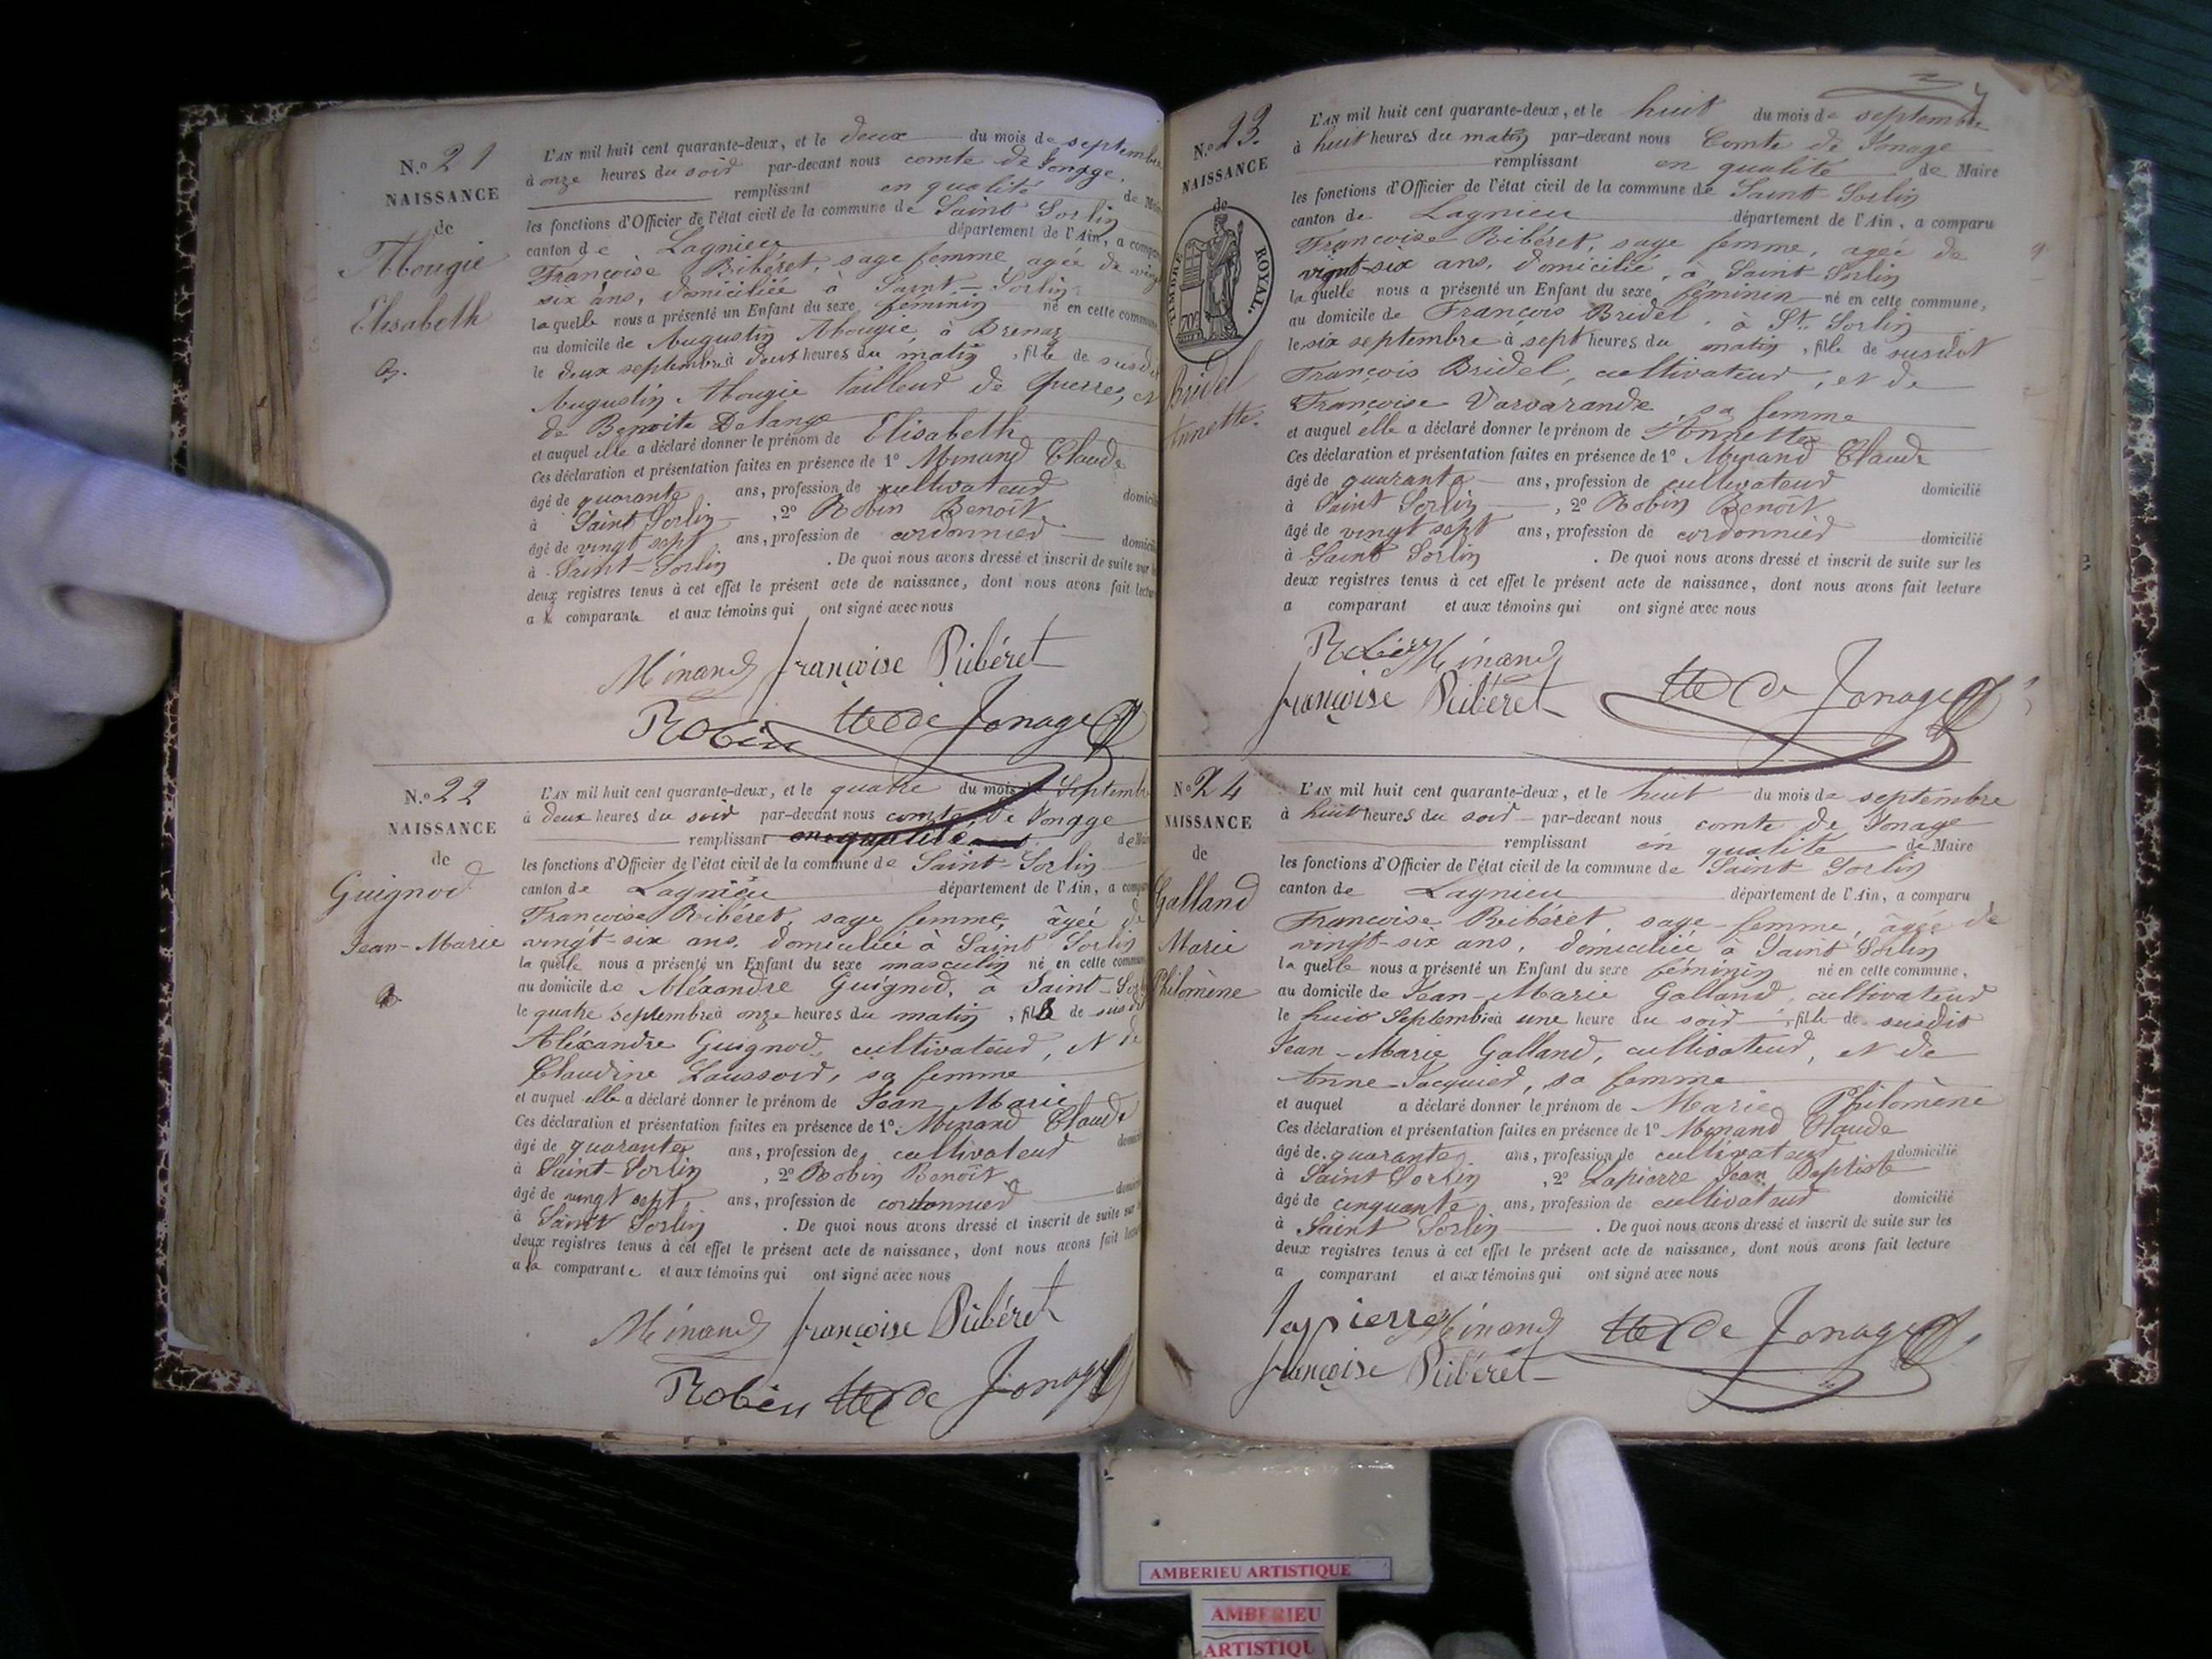 N.º 21
NAISSANCE
de
Mougie
Elisabeth
L'AN mil huit cent quarante-deux, et le deux du mois de septembre
à onze heures du soir par-devant nous comte de Jonage,
remplissant en qualité de Maire
les fonctions d'Officier de l'état civil de la commune de Saint Sorlin
canton de Lagnieu département de l'Ain, a comparu
Françoise Ribéret, sage femme, agée de vingt
six ans, domiciliée à Saint-Sorlin
laquelle nous a présenté un Enfant du sexe féminin né en cette commune
au domicile de Augustin Mougie, à Brenaz
le deux septembre à huit heures du matin, fille de susdit
Augustin Mougie tailleur de pierres, et
de Benoite Delange
et auquel elle a déclaré donner le prénom de Elisabeth
Ces déclaration et présentation faites en présence de 1º Minand Claude
âgé de quarante ans, profession de cultivateur domicilié
à Saint Sorlin, 2º Robin Benoît
âgé de vingt sept ans, profession de cordonnier domicilié
à Saint-Sorlin. De quoi nous avons dressé et inscrit de suite sur les
deux registres tenus à cet effet le présent acte de naissance, dont nous avons fait lecture
a la comparante et aux témoins qui ont signé avec nous
Minand françoise Ribéret
Robin Cte de Jonage
N.º 22
NAISSANCE
de
Guignod
Jean-Marie
L'AN mil huit cent quarante-deux, et le quatre du mois de Septembre
à deux heures du soir par-devant nous comte, de Jonage
remplissant en qualité de Maire
les fonctions d'Officier de l'état civil de la commune de Saint-Sorlin
canton de Lagnieu département de l'Ain, a comparu
Françoise Ribéret, sage femme, âgée de
vingt-six ans, domiciliée à Saint Sorlin
laquelle nous a présenté un Enfant du sexe masculin né en cette commune
au domicile de Aléxandre Guignod, à Saint-Sorlin
le quatre septembre à onze heures du matin, fils de susdit
Aléxandre Guignod, cultivateur, et de
Claudine Laussoid, sa femme
et auquel elle a déclaré donner le prénom de Jean Marie
Ces déclaration et présentation faites en présence de 1º Minand Claude
âgé de quarante ans, profession de cultivateur domicilié
à Saint-Sorlin, 2º Robin Benoît
âgé de vingt sept ans, profession de cordonnier domicilié
à Saint Sorlin. De quoi nous avons dressé et inscrit de suite sur les
deux registres tenus à cet effet le présent acte de naissance, dont nous avons fait lecture
a la comparante et aux témoins qui ont signé avec nous
Minand françoise Ribéret
Robin Cte de Jonage
N.º 23.
NAISSANCE
de
TIMBRE ROYAL
Bridel
Annette.
L'AN mil huit cent quarante-deux, et le huit du mois de septembre
à huit heures du matin par-devant nous Comte de Jonage
remplissant en qualité de Maire
les fonctions d'Officier de l'état civil de la commune de Saint-Sorlin
canton de Lagnieu département de l'Ain, a comparu
Françoise Ribéret, sage femme, agée de
vignt-six ans, domiciliée, à Saint Sorlin
laquelle nous a présenté un Enfant du sexe féminin né en cette commune,
au domicile de François Bridel, à St. Sorlin
le six septembre à sept heures du matin, fille de susdit
François Bridel, cultivateur, et de
Françoise Varvarande, sa femme
et auquel elle a déclaré donner le prénom de Annette
Ces déclaration et présentation faites en présence de 1º Minand Claude
âgé de quarante ans, profession de cultivateur domicilié
à Saint Sorlin, 2º Robin Benoît
âgé de vingt sept ans, profession de cordonnier domicilié
à Saint Sorlin. De quoi nous avons dressé et inscrit de suite sur les
deux registres tenus à cet effet le présent acte de naissance, dont nous avons fait lecture
a comparant et aux témoins qui ont signé avec nous
Robin Minand
françoise Ribéret Cte de Jonage
Nº 24
NAISSANCE
de
Galland
Marie
Philomène
L'AN mil huit cent quarante-deux, et le huit du mois de septembre
à huit heures du soir par-devant nous comte de Jonage
remplissant en qualité de Maire
les fonctions d'Officier de l'état civil de la commune de Saint Sorlin
canton de Lagnieu département de l'Ain, a comparu
Françoise Ribéret, sage-femme, âgée de
vingt-six ans, domiciliée à Saint Sorlin
laquelle nous a présenté un Enfant du sexe féminin né en cette commune,
au domicile de Jean-Marie Galland, cultivateur
le huit Septembre à une heure du soir, fille de susdit
Jean-Marie Galland, cultivateur, et de
Anne Jacquier, sa femme
et auquel a déclaré donner le prénom de Marie Philomène
Ces déclaration et présentation faites en présence de 1º Minand Claude
âgé de quarante ans, profession de cultivateur domicilié
à Saint Sorlin, 2º Lapierre Jean Baptiste
âgé de cinquante ans, profession de cultivateur domicilié
à Saint Sorlin. De quoi nous avons dressé et inscrit de suite sur les
deux registres tenus à cet effet le présent acte de naissance, dont nous avons fait lecture
a comparant et aux témoins qui ont signé avec nous
lapierre Minand Cte de Jonage
françoise Ribéret
AMBERIEU ARTISTIQUE
AMBERIEU
ARTISTIQU